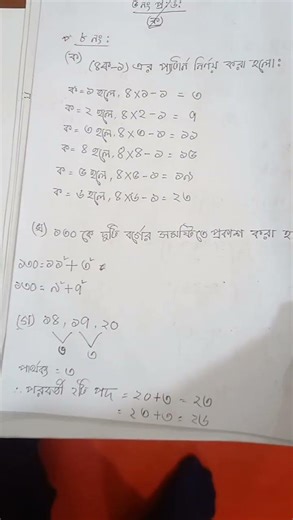 (ক)
(ক) (৪ক-১) এর প্যাটার্ন নির্ণয় করা হলো:
ক=১ হলে, ৪×১-১ = ৩
ক=২ হলে, ৪×২-১ = ৭
ক=৩ হলে, ৪×৩-১ = ১১
ক=৪ হলে, ৪×৪-১ = ১৫
ক=৫ হলে, ৪×৫-১ = ১৯
ক=৬ হলে, ৪×৬-১ = ২৩
(খ) ১৩০ কে দুটি বর্গের সমষ্টিতে প্রকাশ করা হ
১৩০=১১²+৩²
১৩০=৯²+৭²
(গ) ১৪, ১৭, ২০
৩ ৩
পার্থক্য = ৩
∴ পরবর্তী ২টি পদ = ২০+৩ = ২৩
= ২৩+৩ = ২৬